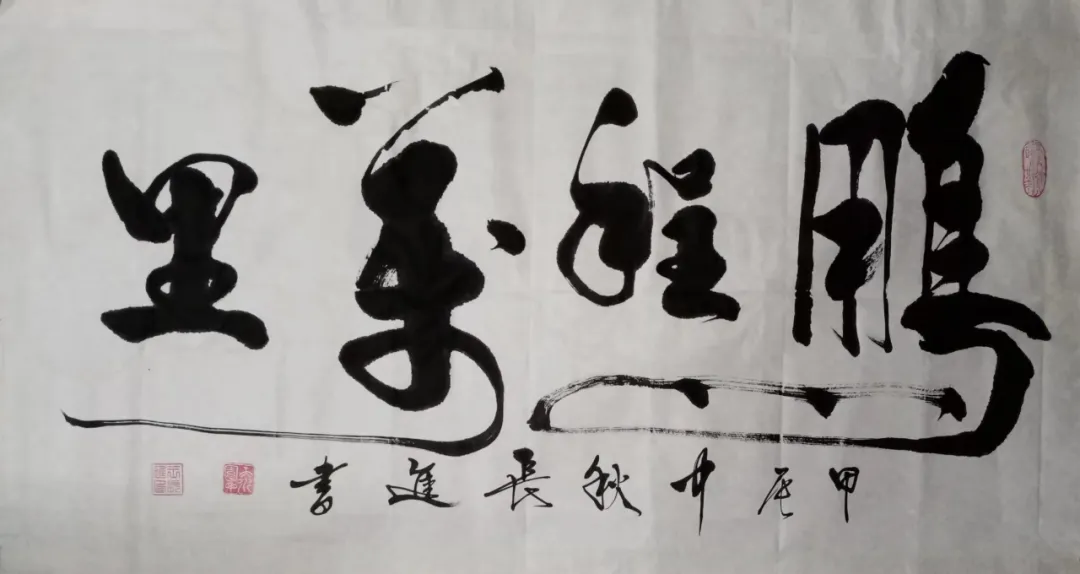 鵬程萬里
甲辰中秋長進書